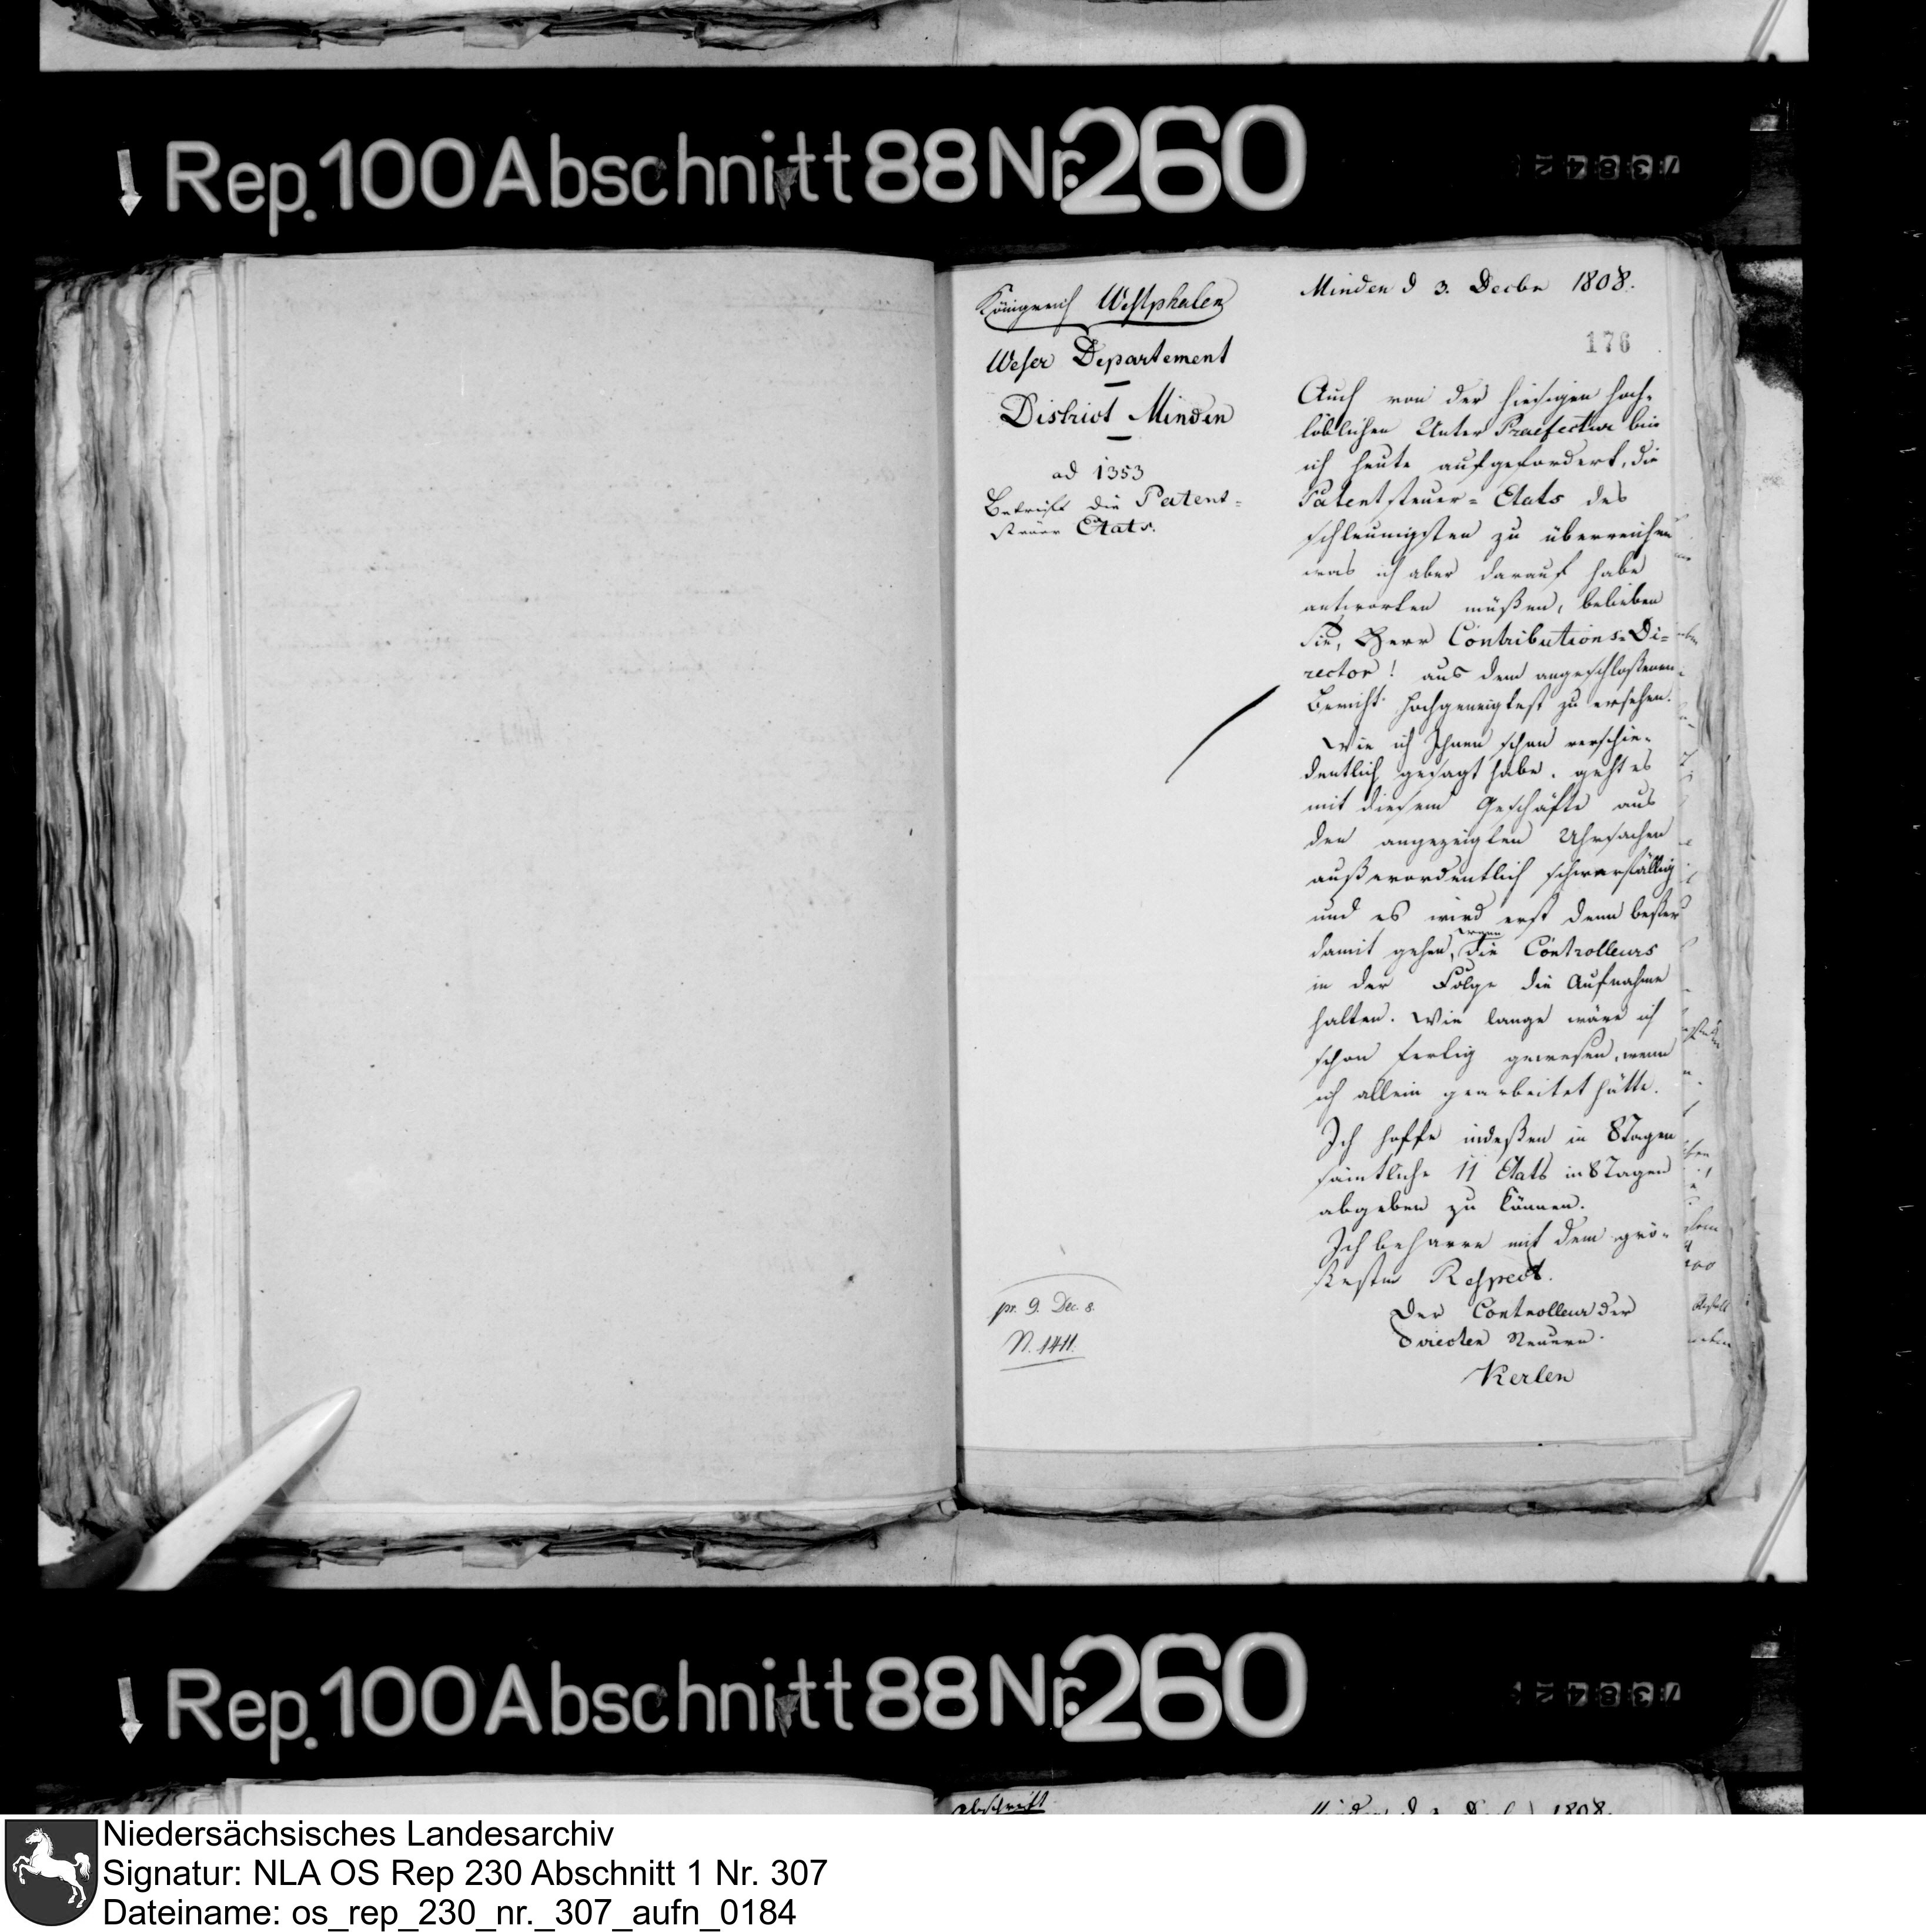 Rep. 100 Abschnitt 88 Nr. 260
Königreich Westphalen
Weser Departement
District Minden
ad 1353
Betrift die Patent-
steuer Etats.
Minden d 3. Decbr 1808.
176
Auch von der hiesigen hoch-
löblichen Unter Praefectur bin
ich heute aufgefordert, die
Patentsteuer-Etats des
schleunigsten zu überreichen
was ich aber darauf habe
antworten müßen, belieben
Sie, Herr Contributions-Di-
rector! aus dem angeschloßenen
Bericht hochgeneigtest zu ersehen.
Wie ich Ihnen schon verschie-
dentlich gesagt habe, geht es
mit diesem Geschäfte aus
den angezeigten Uhrsachen
außerordentlich schwerfällig
und es wird erst denn beßer
damit gehen, wenn die Controlleurs
in der Folge die Aufnahme
halten. Wie lange wäre ich
schon fertig gewesen, wenn
ich allein gearbeitet hätte.
Ich hoffe indeßen in 8 Tagen
sämtliche 11 Etats in 8 Tagen
abgeben zu können.
Ich beharre mit dem grö-
ßesten Respect.
Der Controlleur der
directen Steuern.
Kerlen
pr. 9. Dec. 8.
N. 1411.
Rep. 100 Abschnitt 88 Nr. 260
Abschrift
1808.
Niedersächsisches Landesarchiv
Signatur: NLA OS Rep 230 Abschnitt 1 Nr. 307
Dateiname: os_rep_230_nr._307_aufn_0184